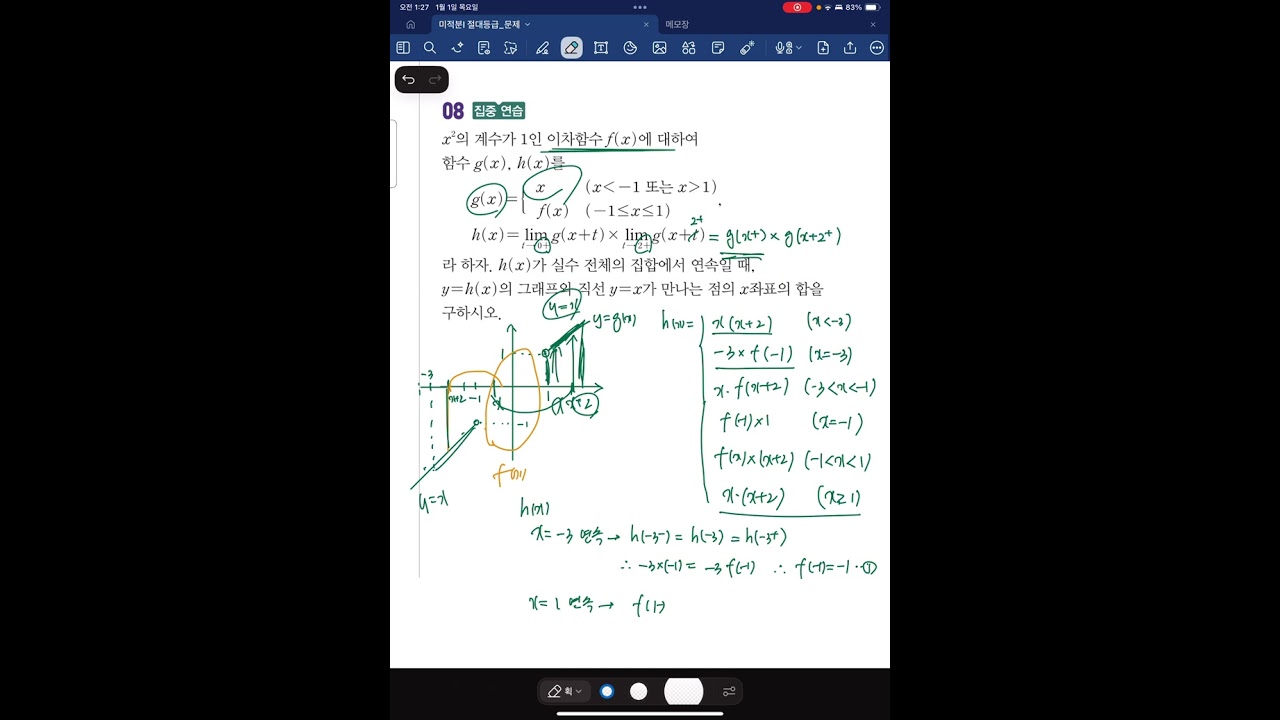 오전 1:27 1월 1일 목요일
83%
미적분Ⅰ 절대등급_문제
메모장
08 집중 연습
x²의 계수가 1인 이차함수 f(x)에 대하여
함수 g(x), h(x)를
g(x)={ x (x<-1 또는 x>1)
f(x) (-1≤x≤1) ,
2+
h(x)=lim g(x+t)×lim g(x+t) = g(x+) × g(x+2+)
t→0+ t→2+
라 하자. h(x)가 실수 전체의 집합에서 연속일 때,
y=h(x)의 그래프와 직선 y=x가 만나는 점의 x좌표의 합을
구하시오.
y=x
y=g(x)
h(x)= x(x+2) (x<-3)
-3×f(-1) (x=-3)
x·f(x+2) (-3<x<-1)
f(-1)×1 (x=-1)
f(x)×(x+2) (-1<x<1)
x·(x+2) (x≥1)
1
-3
x+2 -1 x 1 x x+2
-1
f(x)
y=x
h(x)
x=-3 연속→ h(-3-) = h(-3) = h(-3+)
∴ -3×(-1) = -3f(-1) ∴ f(-1)=-1 ··①
x=1 연속→ f(1-)
획